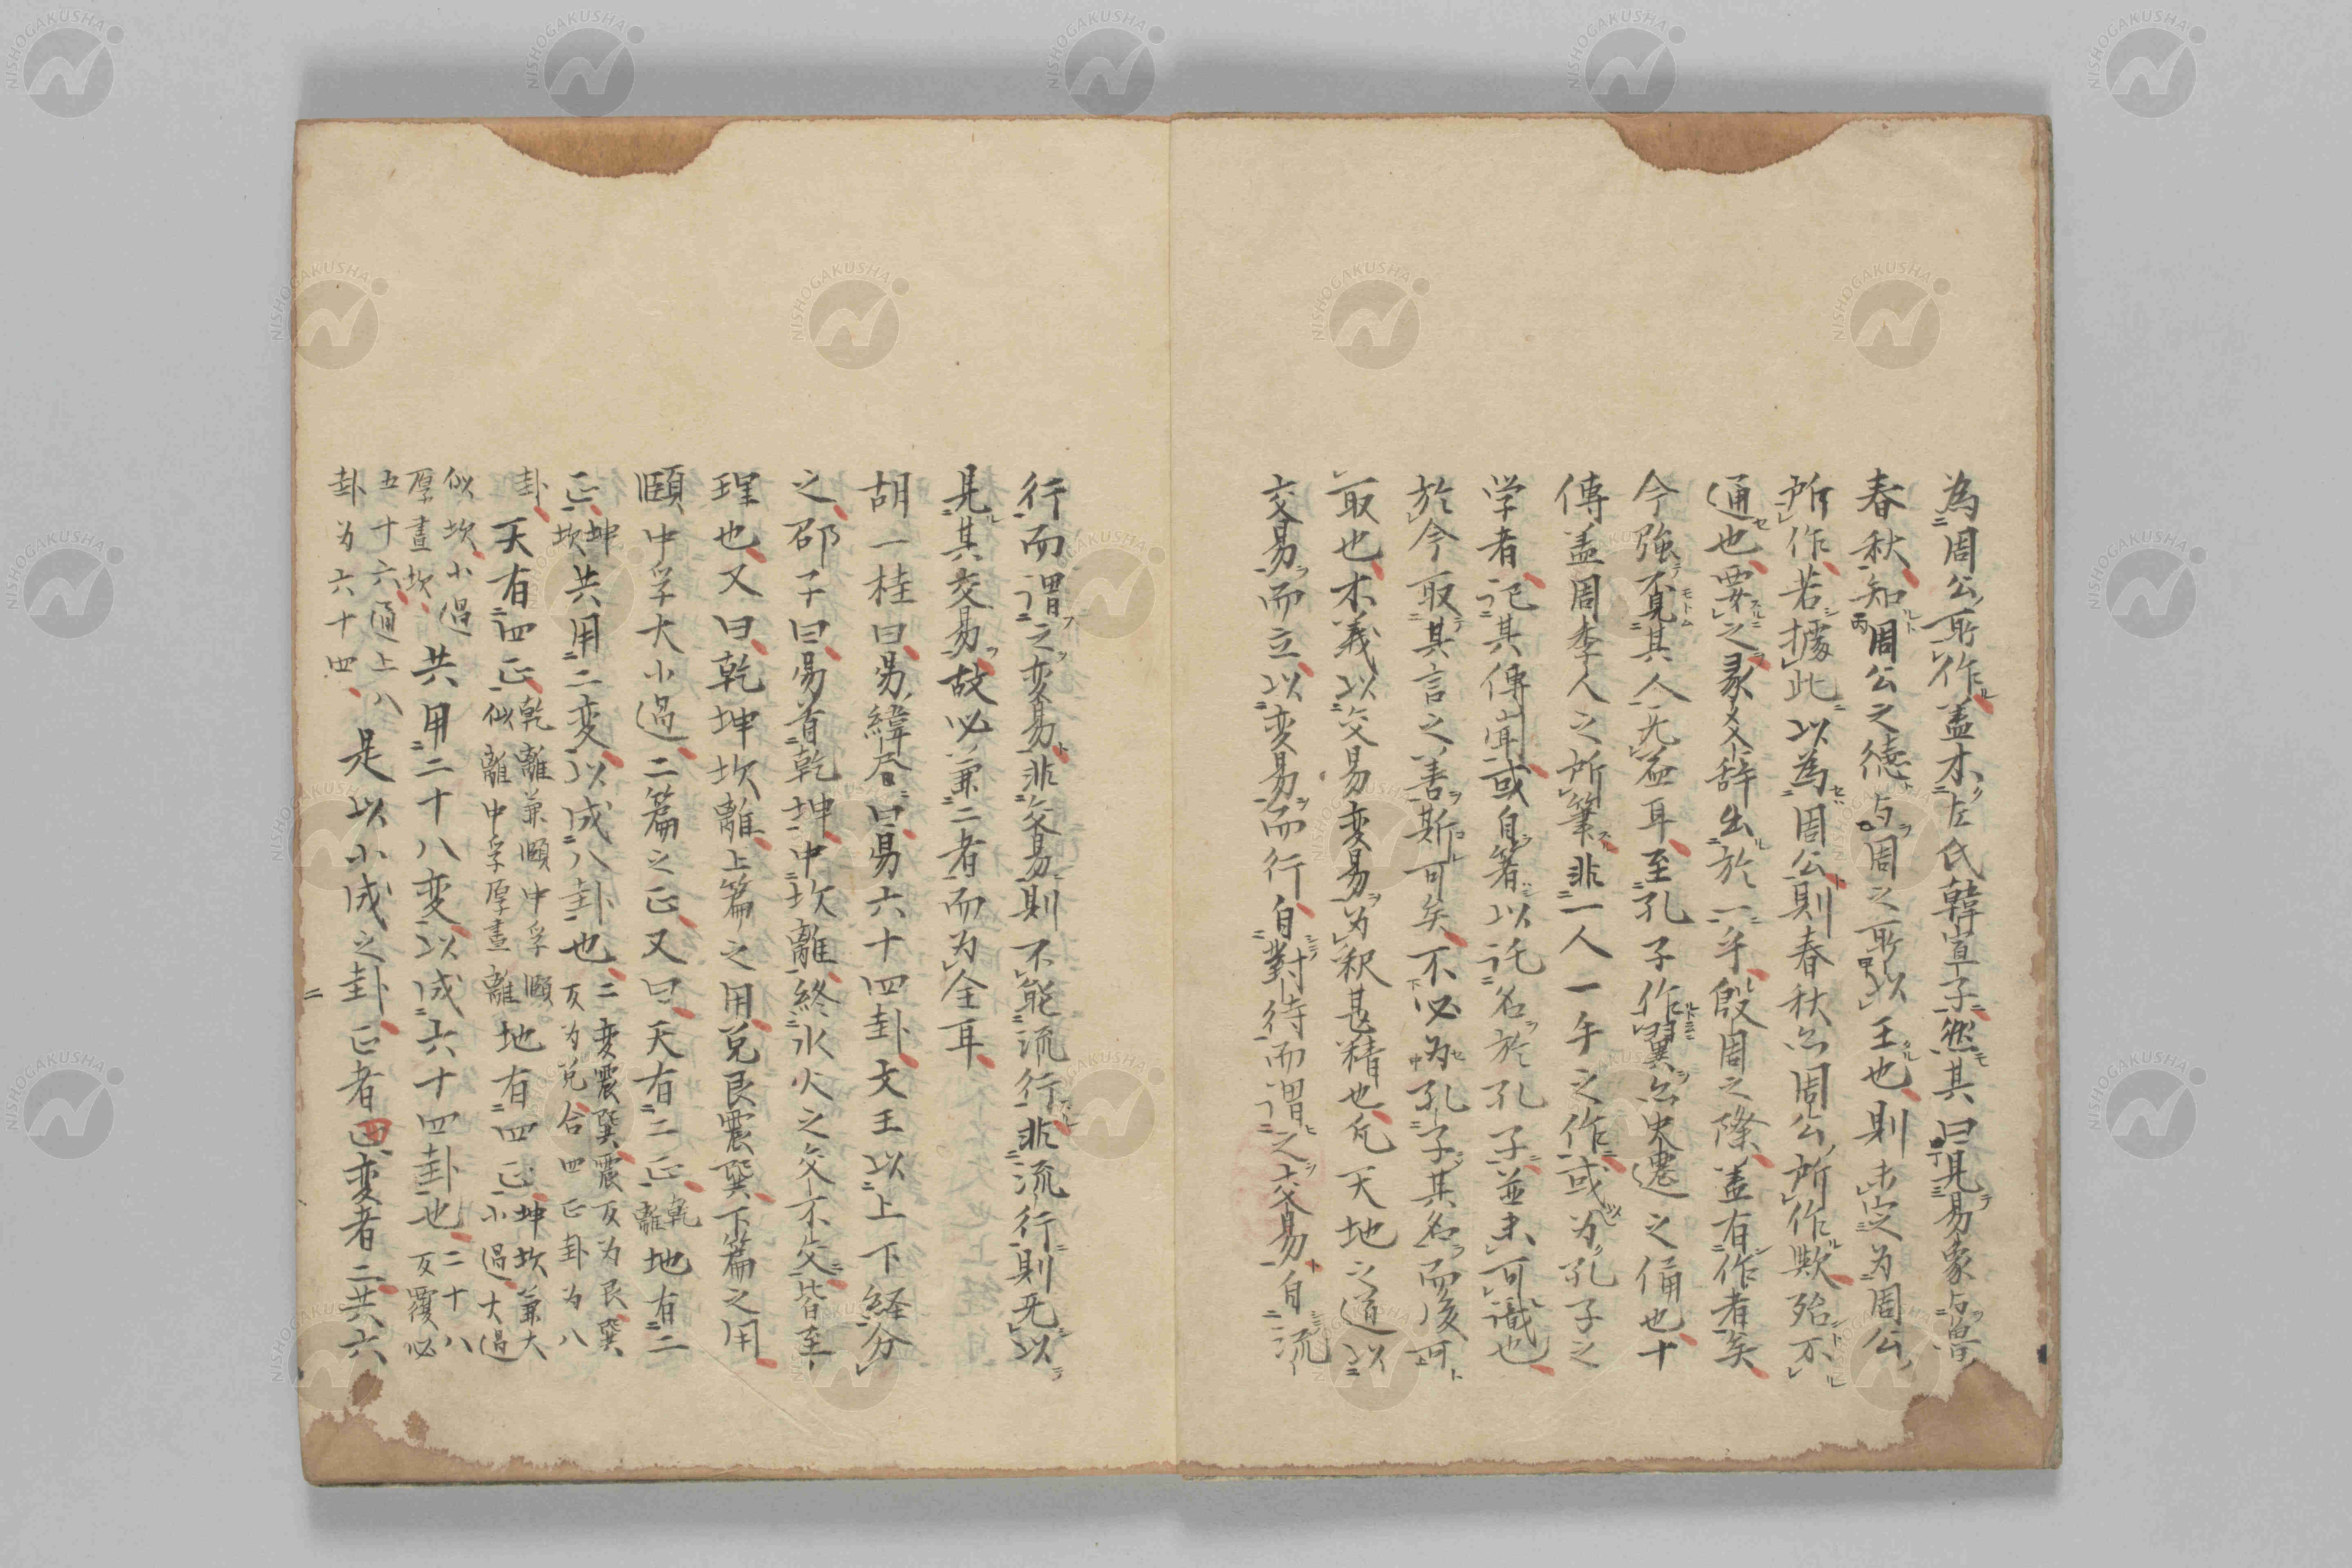 為周公所作蓋本左氏韓宣子然其曰見易象与魯
春秋知周公之徳与周之所以王也則未定為周公
所作若據此以為周公則春秋亦周公所作歟殆不
通也要之彖爻辞出於一手殷周之際蓋有作者矣
今強不見其人無益耳至孔子作翼亦史遷之俑也十
傳蓋周季人之所筆非一人一手之作或为孔子之
学者記其傳聞或自著以託名於孔子並未可識也
於今取其言之善斯可矣不必为孔子其名而後可
取也本義以交易変易为釈甚精也凡天地之道以
交易而立以変易而行自對待而謂之交易自流
行而謂之変易非交易則不能流行非流行則无以
見其交易故必兼二者而为全耳
胡一桂曰易緯

曰易六十四卦文王以上下経分
之邵子曰易首乾坤中坎離終水火之交不交皆至
理也又曰乾坤坎離上篇之用兌艮震巽下篇之用
頤中孚大小過二篇之正又曰天有二正乾離地有二
正坤坎共用二変以成八卦也二変震巽震反为艮巽反为兌合四正卦为八
卦天有四正乾離兼頤中孚頤似離中孚厚畫離地有四正坤坎兼大小過大過
似坎小過厚畫坎共用二十八変以成六十四卦也二十八反覆必
五十六通上八卦为六十四是以小成之卦正者四変者二共六
NISHOGAKUSHA